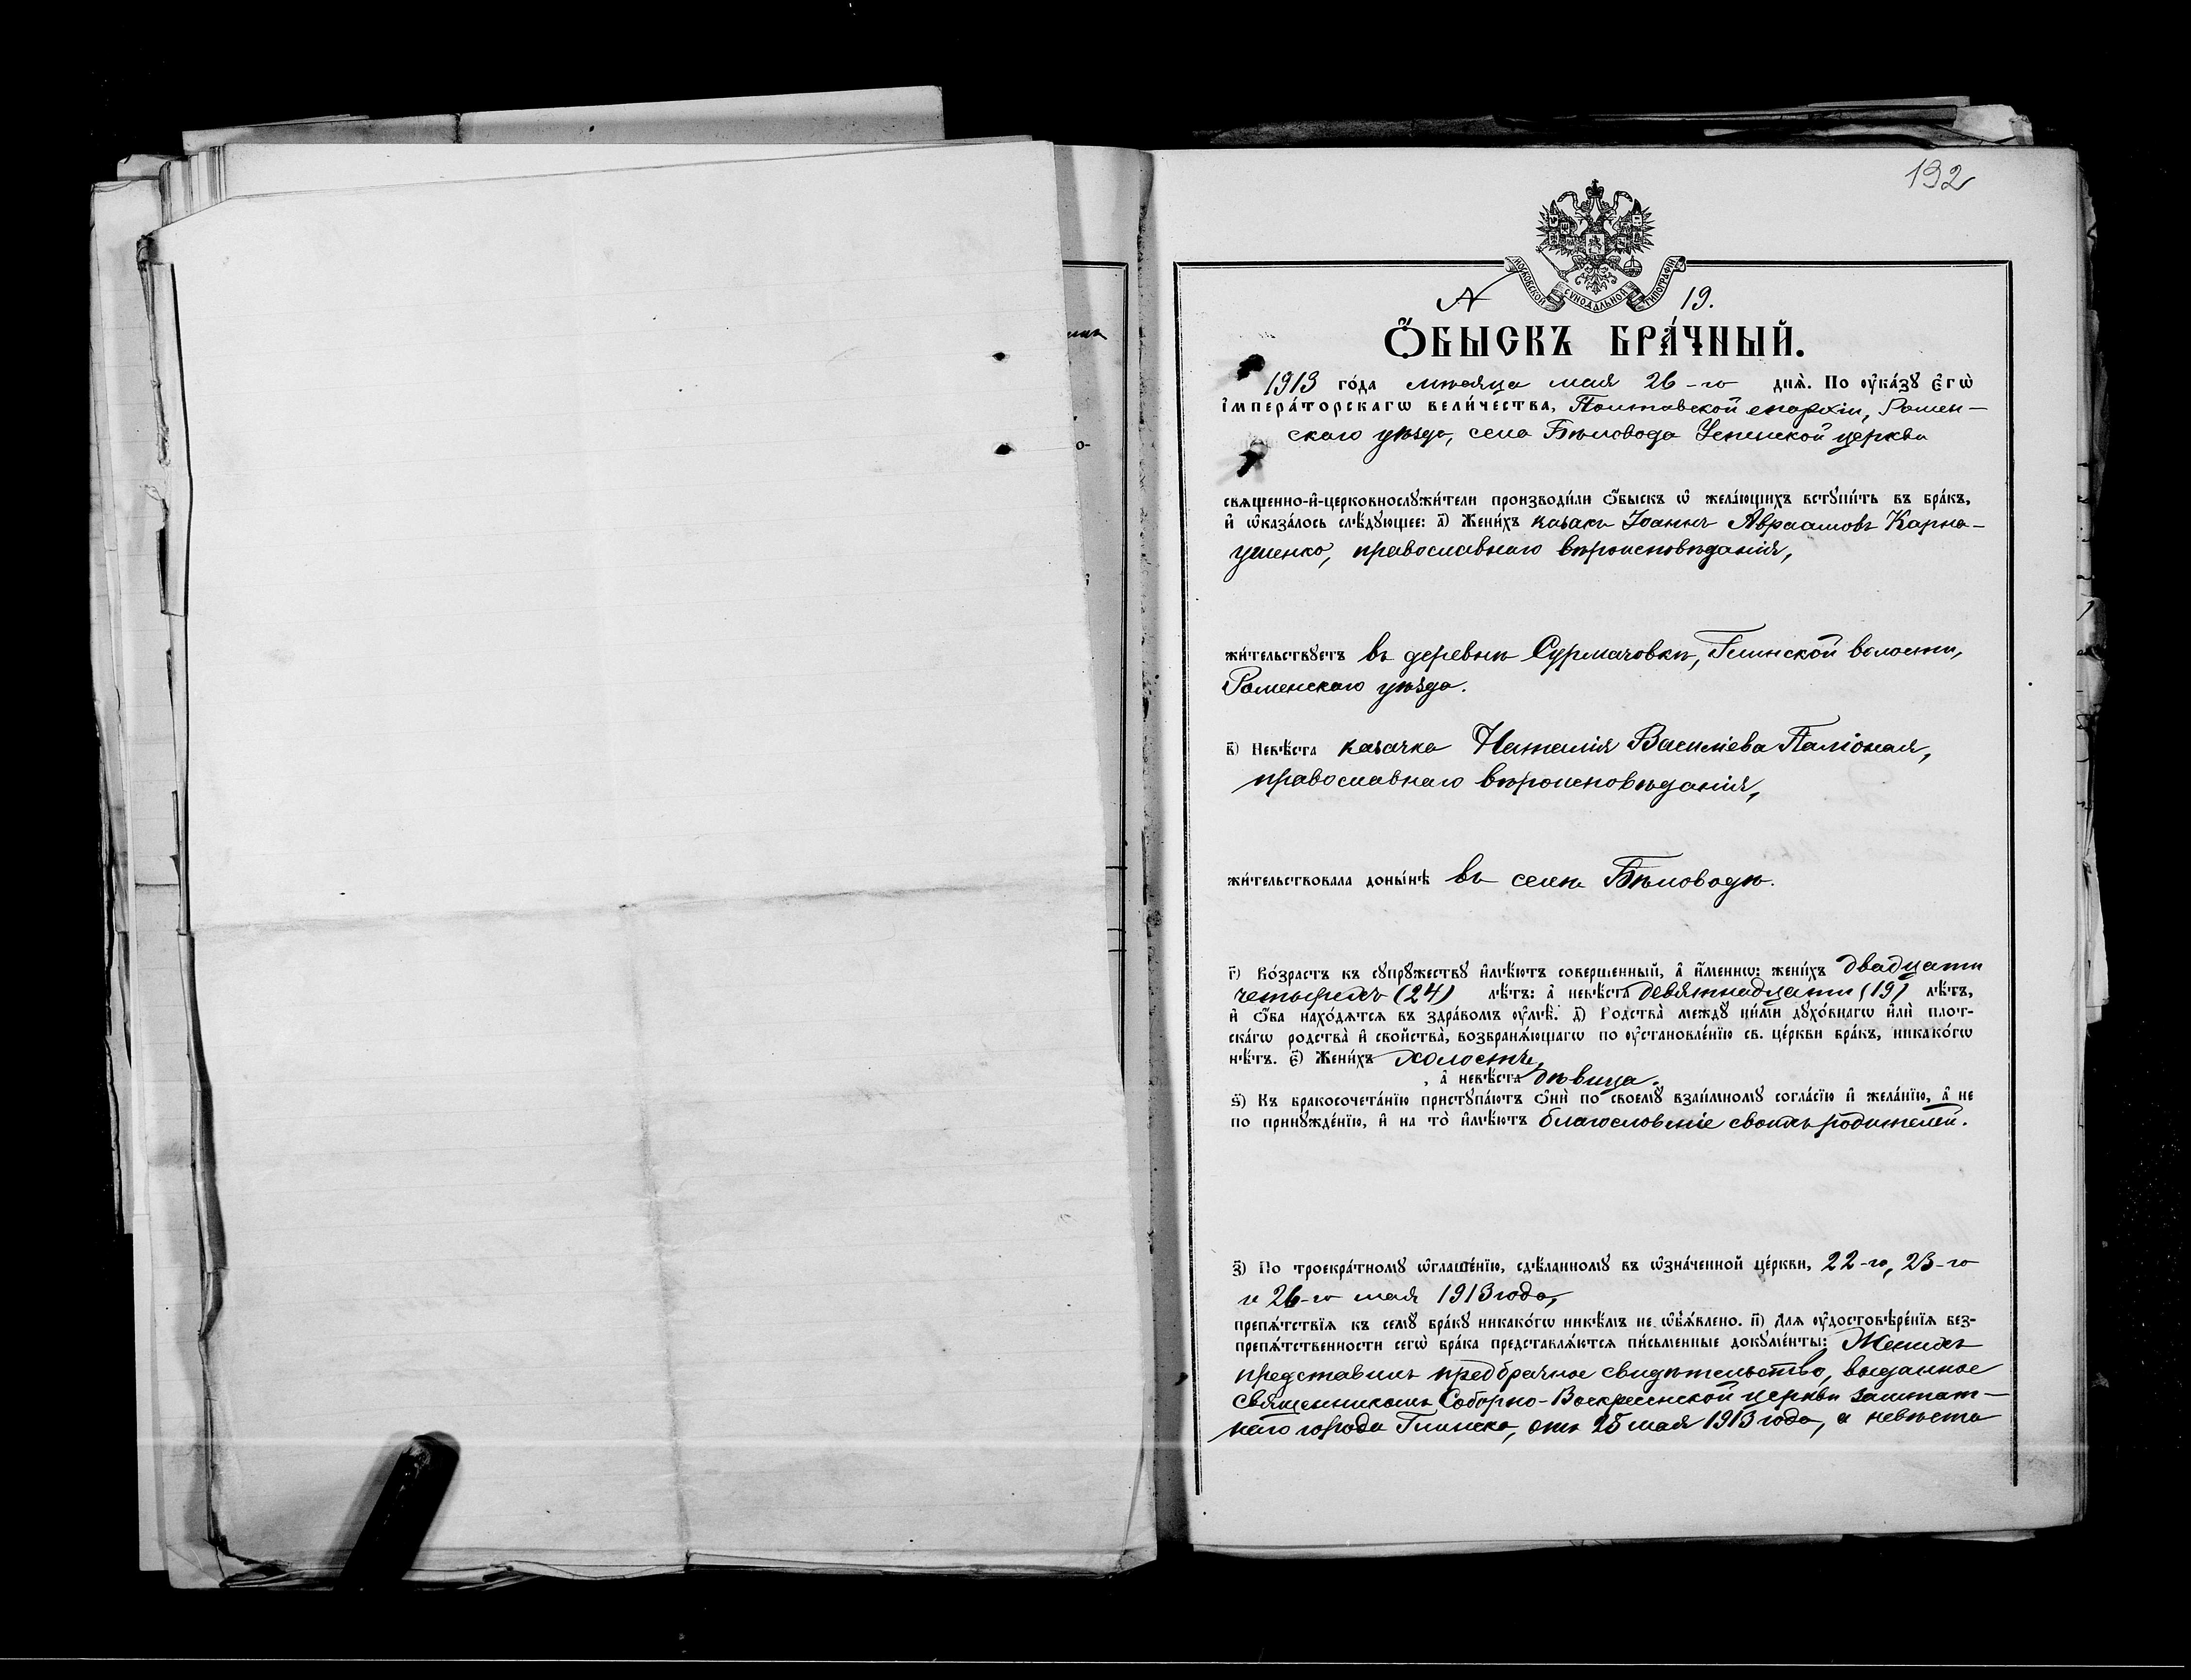 192
МОСКОВСКОЙ СУНОДАЛЬНОЙ ТИПОГРАФІИ
№ 19.
Ѻ҆БЫСКЪ БРА́ЧНЫЙ.
1913 го́да мѣсяца мая 26-го днѧ̀. По ᲂу҆ка́зꙋ є҆гѡ̀
і҆мпера́торскагѡ вели́чества, Полтавской епархіи, Ромен-
скаго уѣзда, села Бѣловода Успенской церкви
свѧщенно-и҆-церковнослꙋжи́тели производи́ли ѻ҆́быскъ ѡ҆ жела́ющихъ встꙋпи́ть въ бра́къ,
и҆ ѡ҆каза́лось слѣ́дꙋющее: а҃) Жени́хъ казакъ Іоаннъ Авраамовъ Карна-
ушенко, православнаго вѣроисповѣданія,
жи́тельствꙋетъ въ деревнѣ Сурмачовкѣ, Глинской волости,
Роменскаго уѣзда.
в҃) Невѣ́ста казачка Наталія Василіева Паліоная,
православнаго вѣроисповѣданія,
жи́тельствовала доны́нѣ въ селѣ Бѣловодѣ.
г҃) Во́зрастъ къ сꙋпрꙋ́жествꙋ и҆мѣ́ютъ соверше́нный, а҆ и҆́меннѡ: жени́хъ двадцати
четырехъ (24) лѣ́тъ: а҆ невѣ́ста девятнадцати (19) лѣ́тъ,
и҆ ѻ҆́ба нахо́дѧтсѧ въ здра́вомъ ᲂу҆мѣ̀. д҃) Родства̀ междꙋ ни́ми дꙋхо́внагѡ и҆лѝ плот-
ска́гѡ родства̀ и҆ сво́йства̀, возбранѧ́ющагѡ по ᲂу҆становле́нїю св. це́ркви бра́къ, никако́гѡ
нѣ́тъ. є҃) Жени́хъ холостъ,
, а҆ невѣ́ста дѣвица.
ѕ҃) Къ бракосочета́нїю пристꙋпа́ютъ ѻ҆нѝ по своемꙋ̀ взаи́мномꙋ согла́сїю и҆ жела́нїю, а҆ не
по принꙋжде́нїю, и҆ на то̀ и҆мѣ́ютъ благословеніе своихъ родителей.
з҃) По троекра́тномꙋ ѡ҆глаше́нїю, сдѣ́ланномꙋ въ ѡ҆зна́ченной це́ркви, 22-го, 23-го
и 26-го мая 1913 года,
препѧ́тствїѧ къ семꙋ̀ бра́кꙋ никако́гѡ никѣ́мъ не ѡ҆б̾ѧ́влено. и҃) Длѧ ᲂу҆достовѣре́нїѧ без-
препѧ́тственности сегѡ̀ бра́ка представлѧ́ютсѧ пи́сьменные докꙋме́нты: Женихъ
представилъ предбрачное свидѣтельство, выданное
священникомъ Соборно-Воскресенской церкви заштат-
наго города Глинска, отъ 25 мая 1913 года, а невѣста